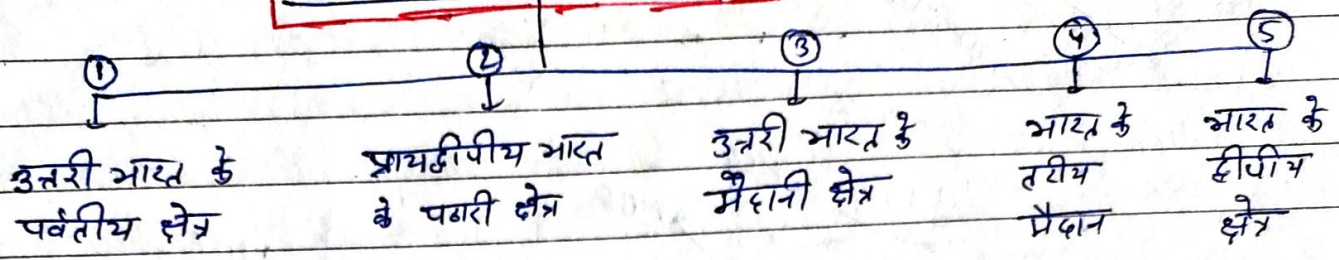 ①
उत्तरी भारत के
पर्वतीय क्षेत्र
②
प्रायद्वीपीय भारत
के पठारी क्षेत्र
③
उत्तरी भारत के
मैदानी क्षेत्र
④
भारत के
तटीय
मैदान
⑤
भारत के
द्वीपीय
क्षेत्र